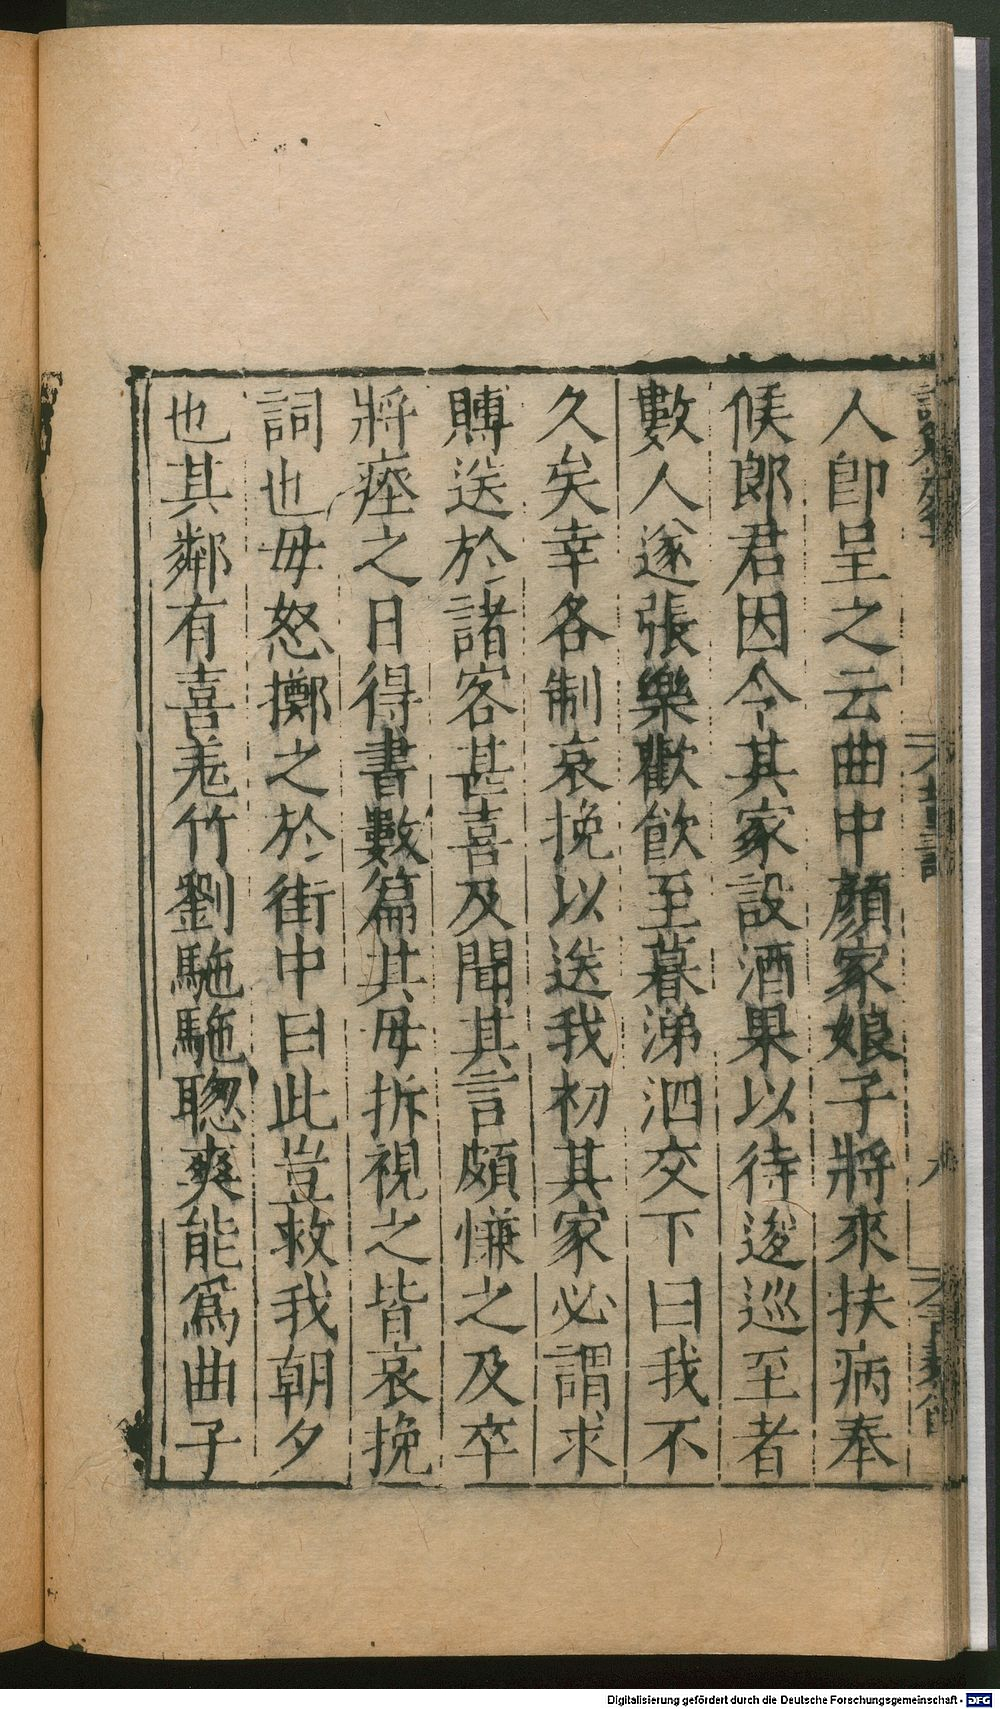 人卽呈之云曲中顔家娘子將來扶病奉
候郎君因令其家設酒果以待逡巡至者
數人遂張樂歡飮至暮涕泗交下曰我不
久矣幸各制哀挽以送我初其家必謂求
賻送於諸客甚喜及聞其言頗慊之及卒
將瘞之日得書數篇其母拆視之皆哀挽
詞也母怒擲之於街中曰此豈救我朝夕
也其鄰有喜羌竹劉駞駞聰爽能爲曲子
Digitalisierung gefördert durch die Deutsche Forschungsgemeinschaft - DFG